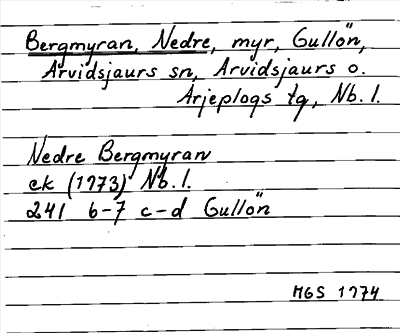 Bergmyran, Nedre, myr, Gullön,
Arvidsjaurs sn, Arvidsjaurs o.
Arjeplogs tg, Nb. l.
Nedre Bergmyran
ek (1973) Nb. l.
241 6-7 c-d Gullön
MGS 1974